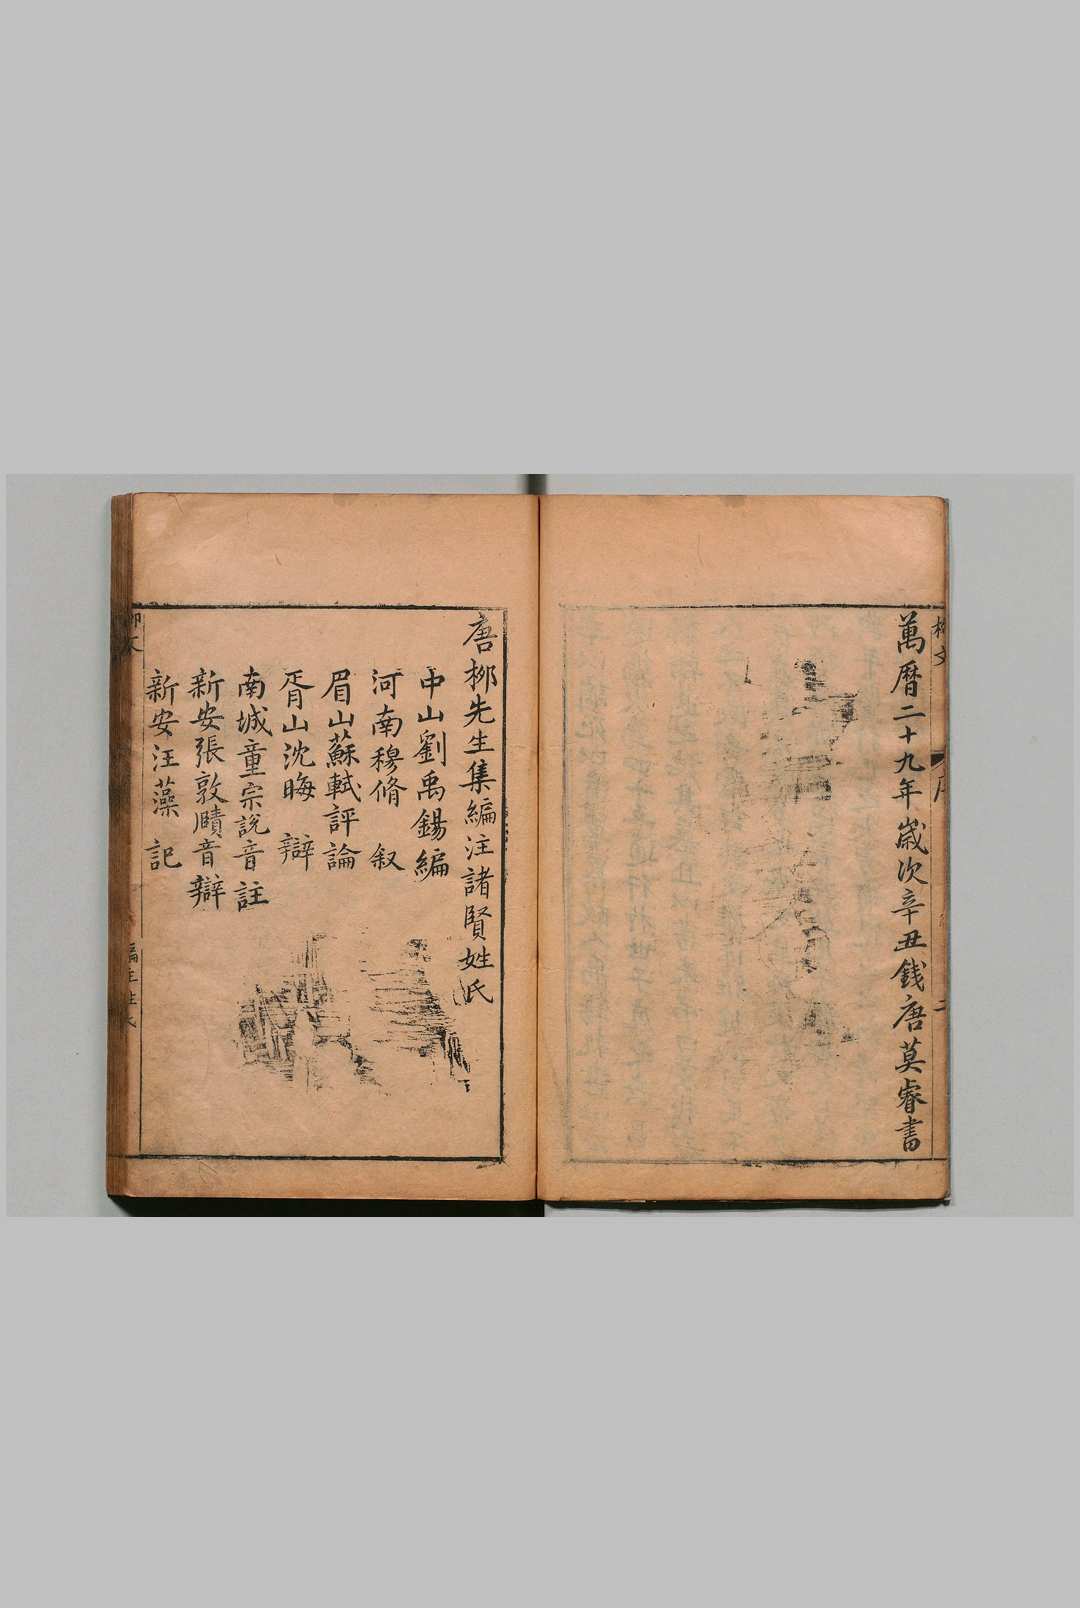 萬曆二十九年嵗次辛丑錢唐莫睿書
唐柳先生集編注諸賢姓氏
中山劉禹錫編
河南穆脩 叙
眉山蘇軾評論
胥山沈晦 辯
南城童宗說音註
新安張敦頤音辯
新安汪藻 記